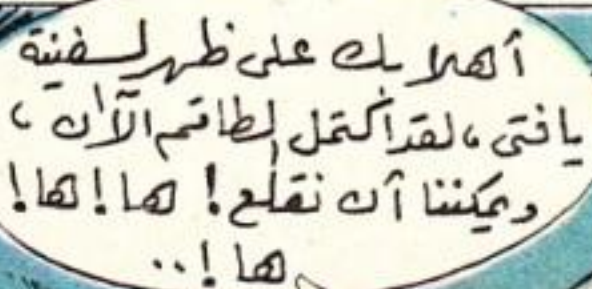 أهلا بك على ظهر السفينة
يافتى، لقد اكتمل الطاقم الآن،
ويمكننا أن نقلع! ها! ها!
ها!..